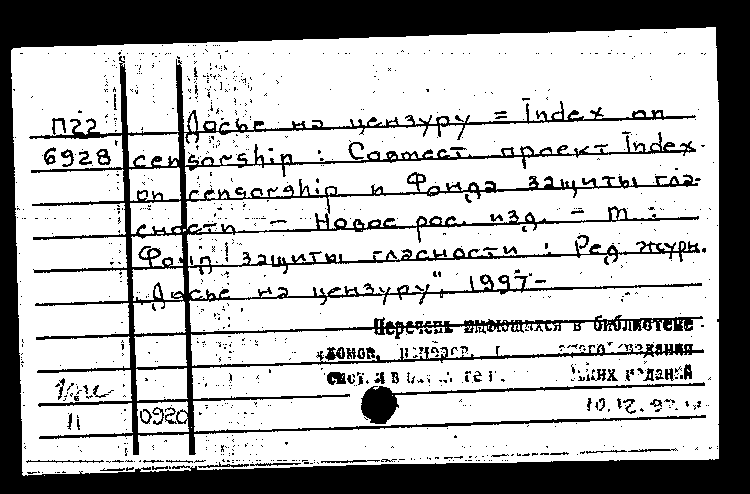 П22 Досье на цензуру = Index on
6928 censorship : Совмест. проект Index
on censorship и Фонда защиты гла-
сности - Новое рос. изд. - М :
Фонд защиты гласности : Ред. журн.
"Досье на цензуру", 1997-
Перечень имеющихся в библиотеке
томов, номеров, этого издания
сист. и в ких изданий
11 0920 10.12.97